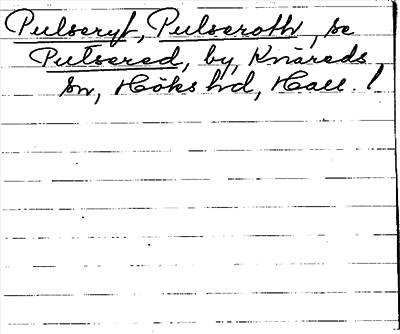 Pulseryt, Pulseroth, se
Putsered, by, Knäreds
sn, Höks hd, Hall. !